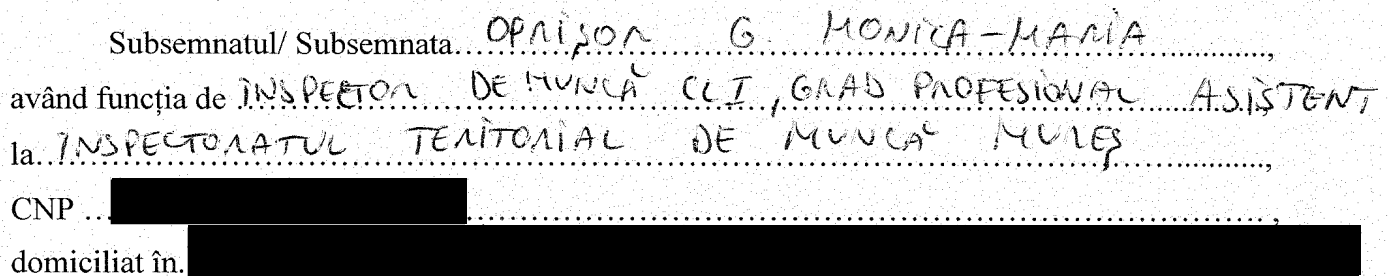 Subsemnatul/ Subsemnata....OPRIȘOR G. MONICA-MARIA..........,
având funcția de INSPECTOR DE MUNCĂ CLI, GRAD PROFESIONAL ASISTENT
la..INSPECTORATUL TERITORIAL DE MUNCĂ MUREȘ..........,
CNP ...............,
domiciliat în.